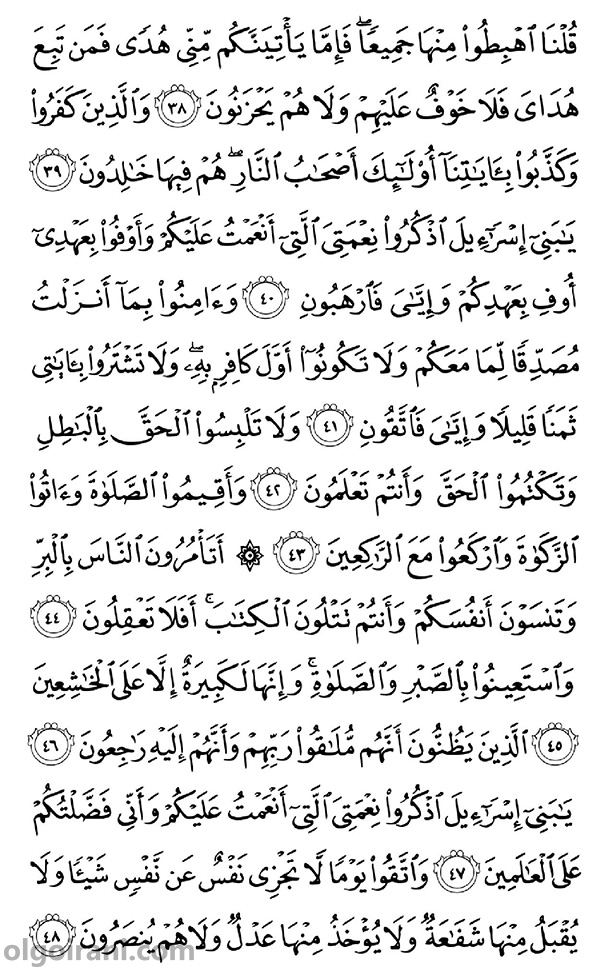 قُلۡنَا ٱهۡبِطُواْ مِنۡهَا جَمِيعٗاۖ فَإِمَّا يَأۡتِيَنَّكُم مِّنِّي هُدٗى فَمَن تَبِعَ
هُدَايَ فَلَا خَوۡفٌ عَلَيۡهِمۡ وَلَا هُمۡ يَحۡزَنُونَ ٣٨ وَٱلَّذِينَ كَفَرُواْ
وَكَذَّبُواْ بِـَٔايَٰتِنَآ أُوْلَٰٓئِكَ أَصۡحَٰبُ ٱلنَّارِۖ هُمۡ فِيهَا خَٰلِدُونَ ٣٩
يَٰبَنِيٓ إِسۡرَٰٓءِيلَ ٱذۡكُرُواْ نِعۡمَتِيَ ٱلَّتِيٓ أَنۡعَمۡتُ عَلَيۡكُمۡ وَأَوۡفُواْ بِعَهۡدِيٓ
أُوفِ بِعَهۡدِكُمۡ وَإِيَّٰيَ فَٱرۡهَبُونِ ٤٠ وَءَامِنُواْ بِمَآ أَنزَلۡتُ
مُصَدِّقٗا لِّمَا مَعَكُمۡ وَلَا تَكُونُوٓاْ أَوَّلَ كَافِرِۭ بِهِۦۖ وَلَا تَشۡتَرُواْ بِـَٔايَٰتِي
ثَمَنٗا قَلِيلٗا وَإِيَّٰيَ فَٱتَّقُونِ ٤١ وَلَا تَلۡبِسُواْ ٱلۡحَقَّ بِٱلۡبَٰطِلِ
وَتَكۡتُمُواْ ٱلۡحَقَّ وَأَنتُمۡ تَعۡلَمُونَ ٤٢ وَأَقِيمُواْ ٱلصَّلَوٰةَ وَءَاتُواْ
ٱلزَّكَوٰةَ وَٱرۡكَعُواْ مَعَ ٱلرَّٰكِعِينَ ٤٣ ۞ أَتَأۡمُرُونَ ٱلنَّاسَ بِٱلۡبِرِّ
وَتَنسَوۡنَ أَنفُسَكُمۡ وَأَنتُمۡ تَتۡلُونَ ٱلۡكِتَٰبَۚ أَفَلَا تَعۡقِلُونَ ٤٤
وَٱسۡتَعِينُواْ بِٱلصَّبۡرِ وَٱلصَّلَوٰةِۚ وَإِنَّهَا لَكَبِيرَةٌ إِلَّا عَلَى ٱلۡخَٰشِعِينَ
٤٥ ٱلَّذِينَ يَظُنُّونَ أَنَّهُم مُّلَٰقُواْ رَبِّهِمۡ وَأَنَّهُمۡ إِلَيۡهِ رَٰجِعُونَ ٤٦
يَٰبَنِيٓ إِسۡرَٰٓءِيلَ ٱذۡكُرُواْ نِعۡمَتِيَ ٱلَّتِيٓ أَنۡعَمۡتُ عَلَيۡكُمۡ وَأَنِّي فَضَّلۡتُكُمۡ
عَلَى ٱلۡعَٰلَمِينَ ٤٧ وَٱتَّقُواْ يَوۡمٗا لَّا تَجۡزِي نَفۡسٌ عَن نَّفۡسٖ شَيۡـٔٗا وَلَا
يُقۡبَلُ مِنۡهَا شَفَٰعَةٞ وَلَا يُؤۡخَذُ مِنۡهَا عَدۡلٞ وَلَا هُمۡ يُنصَرُونَ ٤٨
olgoirani.com